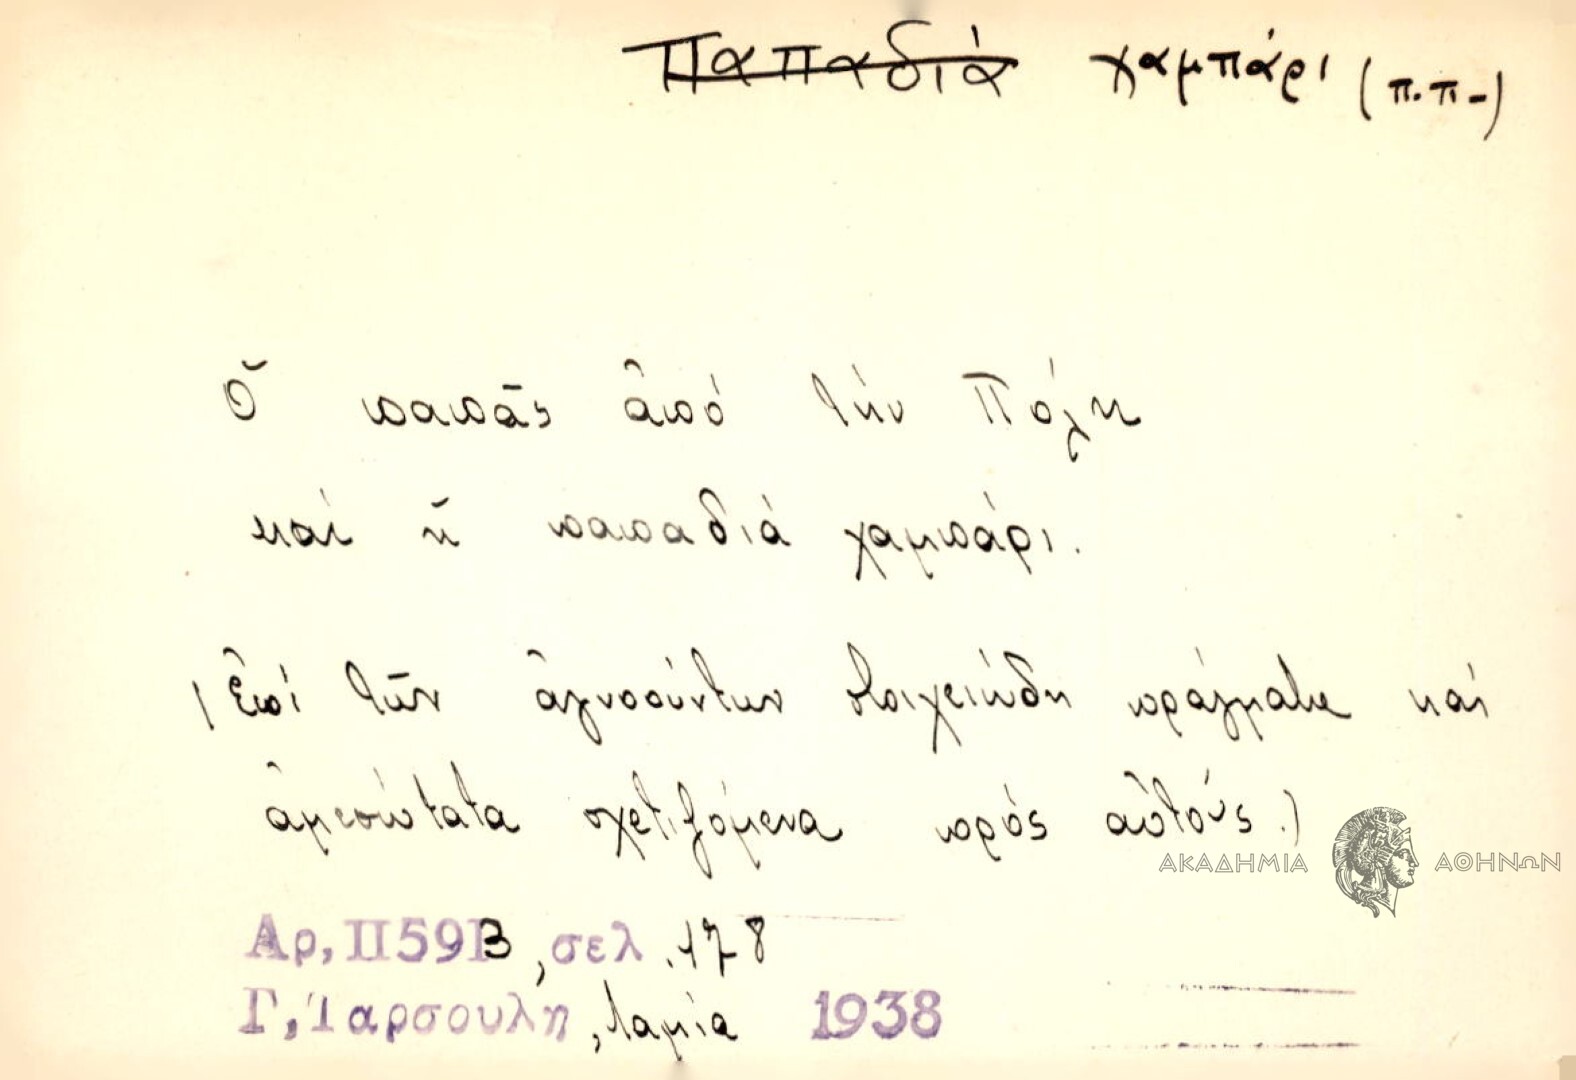 Παπαδιά χαμπάρι (π.π-)
Ὁ παπᾶς ἀπό τήν Πόλη
καί ἡ παπαδιά χαμπάρι.
(Ἐπί τῶν ἀγνοούντων στοιχειώδη πράγματα καί
ἀμεσώτατα σχετιζόμενα πρός αὐτούς.)
ΑΚΑΔΗΜΙΑ ΑΘΗΝΩΝ
Αρ, ΙΙ 59 Β, σελ. 178
Γ, Ταρσούλη, Λαμία 1938